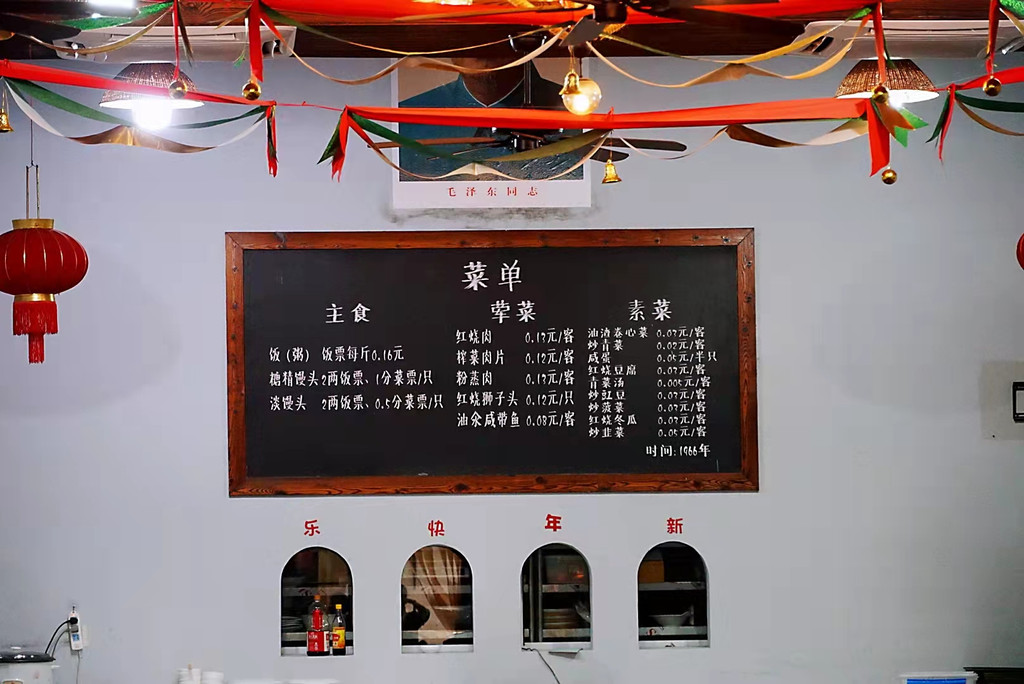 毛泽东同志
菜单
主食
饭（粥） 饭票每斤0.16元
糖精馒头2两饭票、1分菜票/只
淡馒头 2两饭票、0.5分菜票/只
荤菜
红烧肉 0.17元/客
榨菜肉片 0.12元/客
粉蒸肉 0.17元/客
红烧狮子头 0.12元/只
油氽咸带鱼 0.08元/客
素菜
油渣卷心菜 0.07元/客
炒青菜 0.07元/客
咸蛋 0.05元/半只
红烧豆腐 0.07元/客
青菜汤 0.005元/客
炒豇豆 0.07元/客
炒菠菜 0.07元/客
红烧冬瓜 0.07元/客
炒韭菜 0.05元/客
时间：1966年
乐快年新